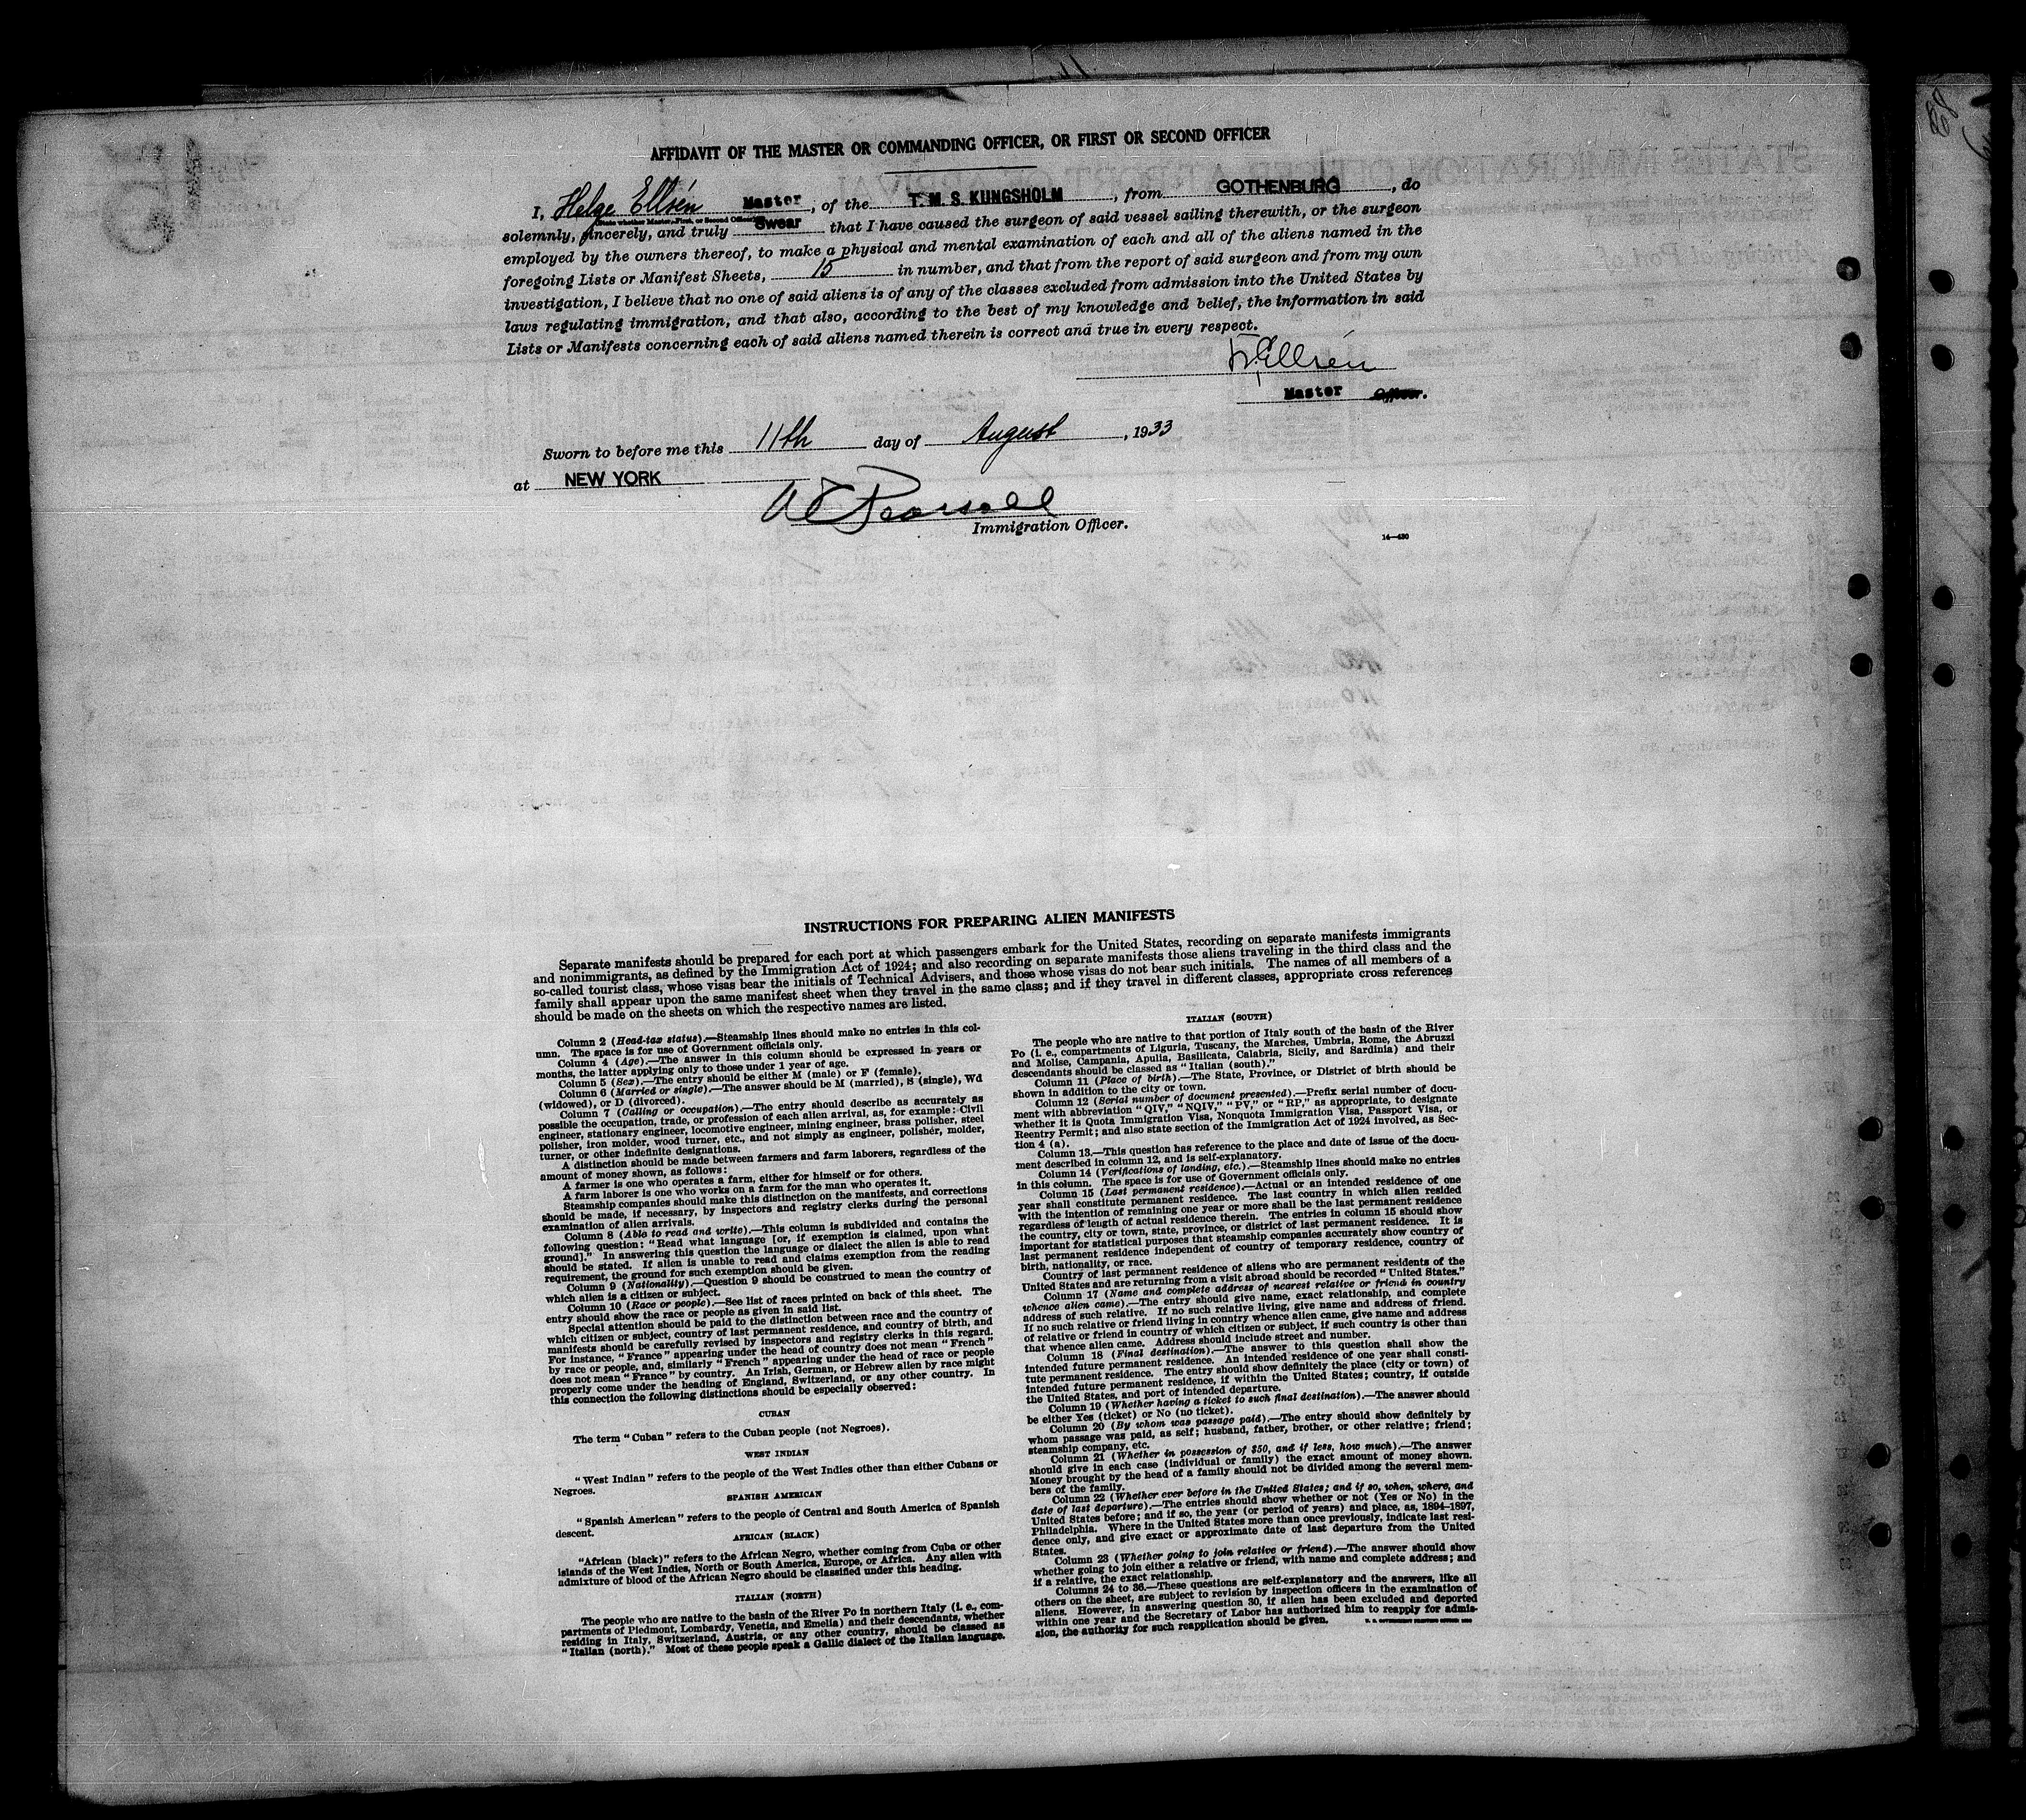 AFFIDAVIT OF THE MASTER OR COMMANDING OFFICER, OR FIRST OR SECOND OFFICER
I, Helge Ellsén Master, of the T. M. S. KUNGSHOLM, from GOTHENBURG, do
(State whether Master, First, or Second Officer)
solemnly, sincerely, and truly Swear that I have caused the surgeon of said vessel sailing therewith, or the surgeon
employed by the owners thereof, to make a physical and mental examination of each and all of the aliens named in the
foregoing Lists or Manifest Sheets, 15 in number, and that from the report of said surgeon and from my own
investigation, I believe that no one of said aliens is of any of the classes excluded from admission into the United States by
laws regulating immigration, and that also, according to the best of my knowledge and belief, the information in said
Lists or Manifests concerning each of said aliens named therein is correct and true in every respect.
H. Ellsén
Master Officer.
Sworn to before me this 11th day of August, 1933
at NEW YORK
Immigration Officer.
14—430
INSTRUCTIONS FOR PREPARING ALIEN MANIFESTS
Separate manifests should be prepared for each port at which passengers embark for the United States, recording on separate manifests immigrants
and nonimmigrants, as defined by the Immigration Act of 1924; and also recording on separate manifests those aliens traveling in the third class and the
so-called tourist class, whose visas bear the initials of Technical Advisers, and those whose visas do not bear such initials. The names of all members of a
family shall appear upon the same manifest sheet when they travel in the same class; and if they travel in different classes, appropriate cross references
should be made on the sheets on which the respective names are listed.
Column 2 (Head-tax status).—Steamship lines should make no entries in this col-
umn. The space is for use of Government officials only.
Column 4 (Age).—The answer in this column should be expressed in years or
months, the latter applying only to those under 1 year of age.
Column 5 (Sex).—The entry should be either M (male) or F (female).
Column 6 (Married or single).—The answer should be M (married), S (single), Wd
(widowed), or D (divorced).
Column 7 (Calling or occupation).—The entry should describe as accurately as
possible the occupation, trade, or profession of each alien arrival, as, for example: Civil
engineer, stationary engineer, locomotive engineer, mining engineer, brass polisher, steel
polisher, iron molder, wood turner, etc., and not simply as engineer, polisher, molder,
turner, or other indefinite designations.
A distinction should be made between farmers and farm laborers, regardless of the
amount of money shown, as follows:
A farmer is one who operates a farm, either for himself or for others.
A farm laborer is one who works on a farm for the man who operates it.
Steamship companies should make this distinction on the manifests, and corrections
should be made, if necessary, by inspectors and registry clerks during the personal
examination of alien arrivals.
Column 8 (Able to read and write).—This column is subdivided and contains the
following question: "Read what language [or, if exemption is claimed, upon what
ground]." In answering this question the language or dialect the alien is able to read
should be stated. If alien is unable to read and claims exemption from the reading
requirement, the ground for such exemption should be given.
Column 9 (Nationality).—Question 9 should be construed to mean the country of
which alien is a citizen or subject.
Column 10 (Race or people).—See list of races printed on back of this sheet. The
entry should show the race or people as given in said list.
Special attention should be paid to the distinction between race and the country of
which citizen or subject, country of last permanent residence, and country of birth, and
manifests should be carefully revised by inspectors and registry clerks in this regard.
For instance, "France" appearing under the head of country does not mean "French"
by race or people, and, similarly "French" appearing under the head of race or people
does not mean "France" by country. An Irish, German, or Hebrew alien by race might
properly come under the heading of England, Switzerland, or any other country. In
this connection the following distinctions should be especially observed:
CUBAN
The term "Cuban" refers to the Cuban people (not Negroes).
WEST INDIAN
"West Indian" refers to the people of the West Indies other than either Cubans or
Negroes.
SPANISH AMERICAN
"Spanish American" refers to the people of Central and South America of Spanish
descent.
AFRICAN (BLACK)
"African (black)" refers to the African Negro, whether coming from Cuba or other
islands of the West Indies, North or South America, Europe, or Africa. Any alien with
admixture of blood of the African Negro should be classified under this heading.
ITALIAN (NORTH)
The people who are native to the basin of the River Po in northern Italy (i. e., com-
partments of Piedmont, Lombardy, Venetia, and Emelia) and their descendants, whether
residing in Italy, Switzerland, Austria, or any other country, should be classed as
"Italian (north)." Most of these people speak a Gallic dialect of the Italian language.
ITALIAN (SOUTH)
The people who are native to that portion of Italy south of the basin of the River
Po (i. e., compartments of Liguria, Tuscany, the Marches, Umbria, Rome, the Abruzzi
and Molise, Campania, Apulia, Basilicata, Calabria, Sicily, and Sardinia) and their
descendants should be classed as "Italian (south)."
Column 11 (Place of birth).—The State, Province, or District of birth should be
shown in addition to the city or town.
Column 12 (Serial number of document presented).—Prefix serial number of docu-
ment with abbreviation "QIV," "NQIV," "PV," or "RP," as appropriate, to designate
whether it is Quota Immigration Visa, Nonquota Immigration Visa, Passport Visa, or
Reentry Permit; and also state section of the Immigration Act of 1924 involved, as Sec-
tion 4 (a).
Column 13.—This question has reference to the place and date of issue of the docu-
ment described in column 12, and is self-explanatory.
Column 14 (Verifications of landing, etc.).—Steamship lines should make no entries
in this column. The space is for use of Government officials only.
Column 15 (Last permanent residence).—Actual or an intended residence of one
year shall constitute permanent residence. The last country in which alien resided
with the intention of remaining one year or more shall be the last permanent residence
regardless of length of actual residence therein. The entries in column 15 should show
the country, city or town, state, province, or district of last permanent residence. It is
important for statistical purposes that steamship companies accurately show country of
last permanent residence independent of country of temporary residence, country of
birth, nationality, or race.
Country of last permanent residence of aliens who are permanent residents of the
United States and are returning from a visit abroad should be recorded "United States."
Column 17 (Name and complete address of nearest relative or friend in country
whence alien came).—The entry should give name, exact relationship, and complete
address of such relative. If no such relative living, give name and address of friend.
If no such relative or friend living in country whence alien came, give name and address
of relative or friend in country of which citizen or subject, if such country is other than
that whence alien came. Address should include street and number.
Column 18 (Final destination).—The answer to this question shall show the
intended future permanent residence. An intended residence of one year shall consti-
tute permanent residence. The entry should show definitely the place (city or town) of
intended future permanent residence, if within the United States; country, if outside
the United States, and port of intended departure.
Column 19 (Whether having a ticket to such final destination).—The answer should
be either Yes (ticket) or No (no ticket).
Column 20 (By whom was passage paid).—The entry should show definitely by
whom passage was paid, as self; husband, father, brother, or other relative; friend;
steamship company, etc.
Column 21 (Whether in possession of $50, and if less, how much).—The answer
should give in each case (individual or family) the exact amount of money shown.
Money brought by the head of a family should not be divided among the several mem-
bers of the family.
Column 22 (Whether ever before in the United States; and if so, when, where, and
date of last departure).—The entries should show whether or not (Yes or No) in the
United States before; and if so, the year (or period of years) and place, as, 1894–1897,
Philadelphia. Where in the United States more than once previously, indicate last resi-
dence only, and give exact or approximate date of last departure from the United
States.
Column 23 (Whether going to join relative or friend).—The answer should show
whether going to join either a relative or friend, with name and complete address; and
if a relative, the exact relationship.
Columns 24 to 36.—These questions are self-explanatory and the answers, like all
others on the sheet, are subject to revision by inspection officers in the examination of
aliens. However, in answering question 30, if alien has been excluded and deported
within one year and the Secretary of Labor has authorized him to reapply for admis-
sion, the authority for such reapplication should be given.